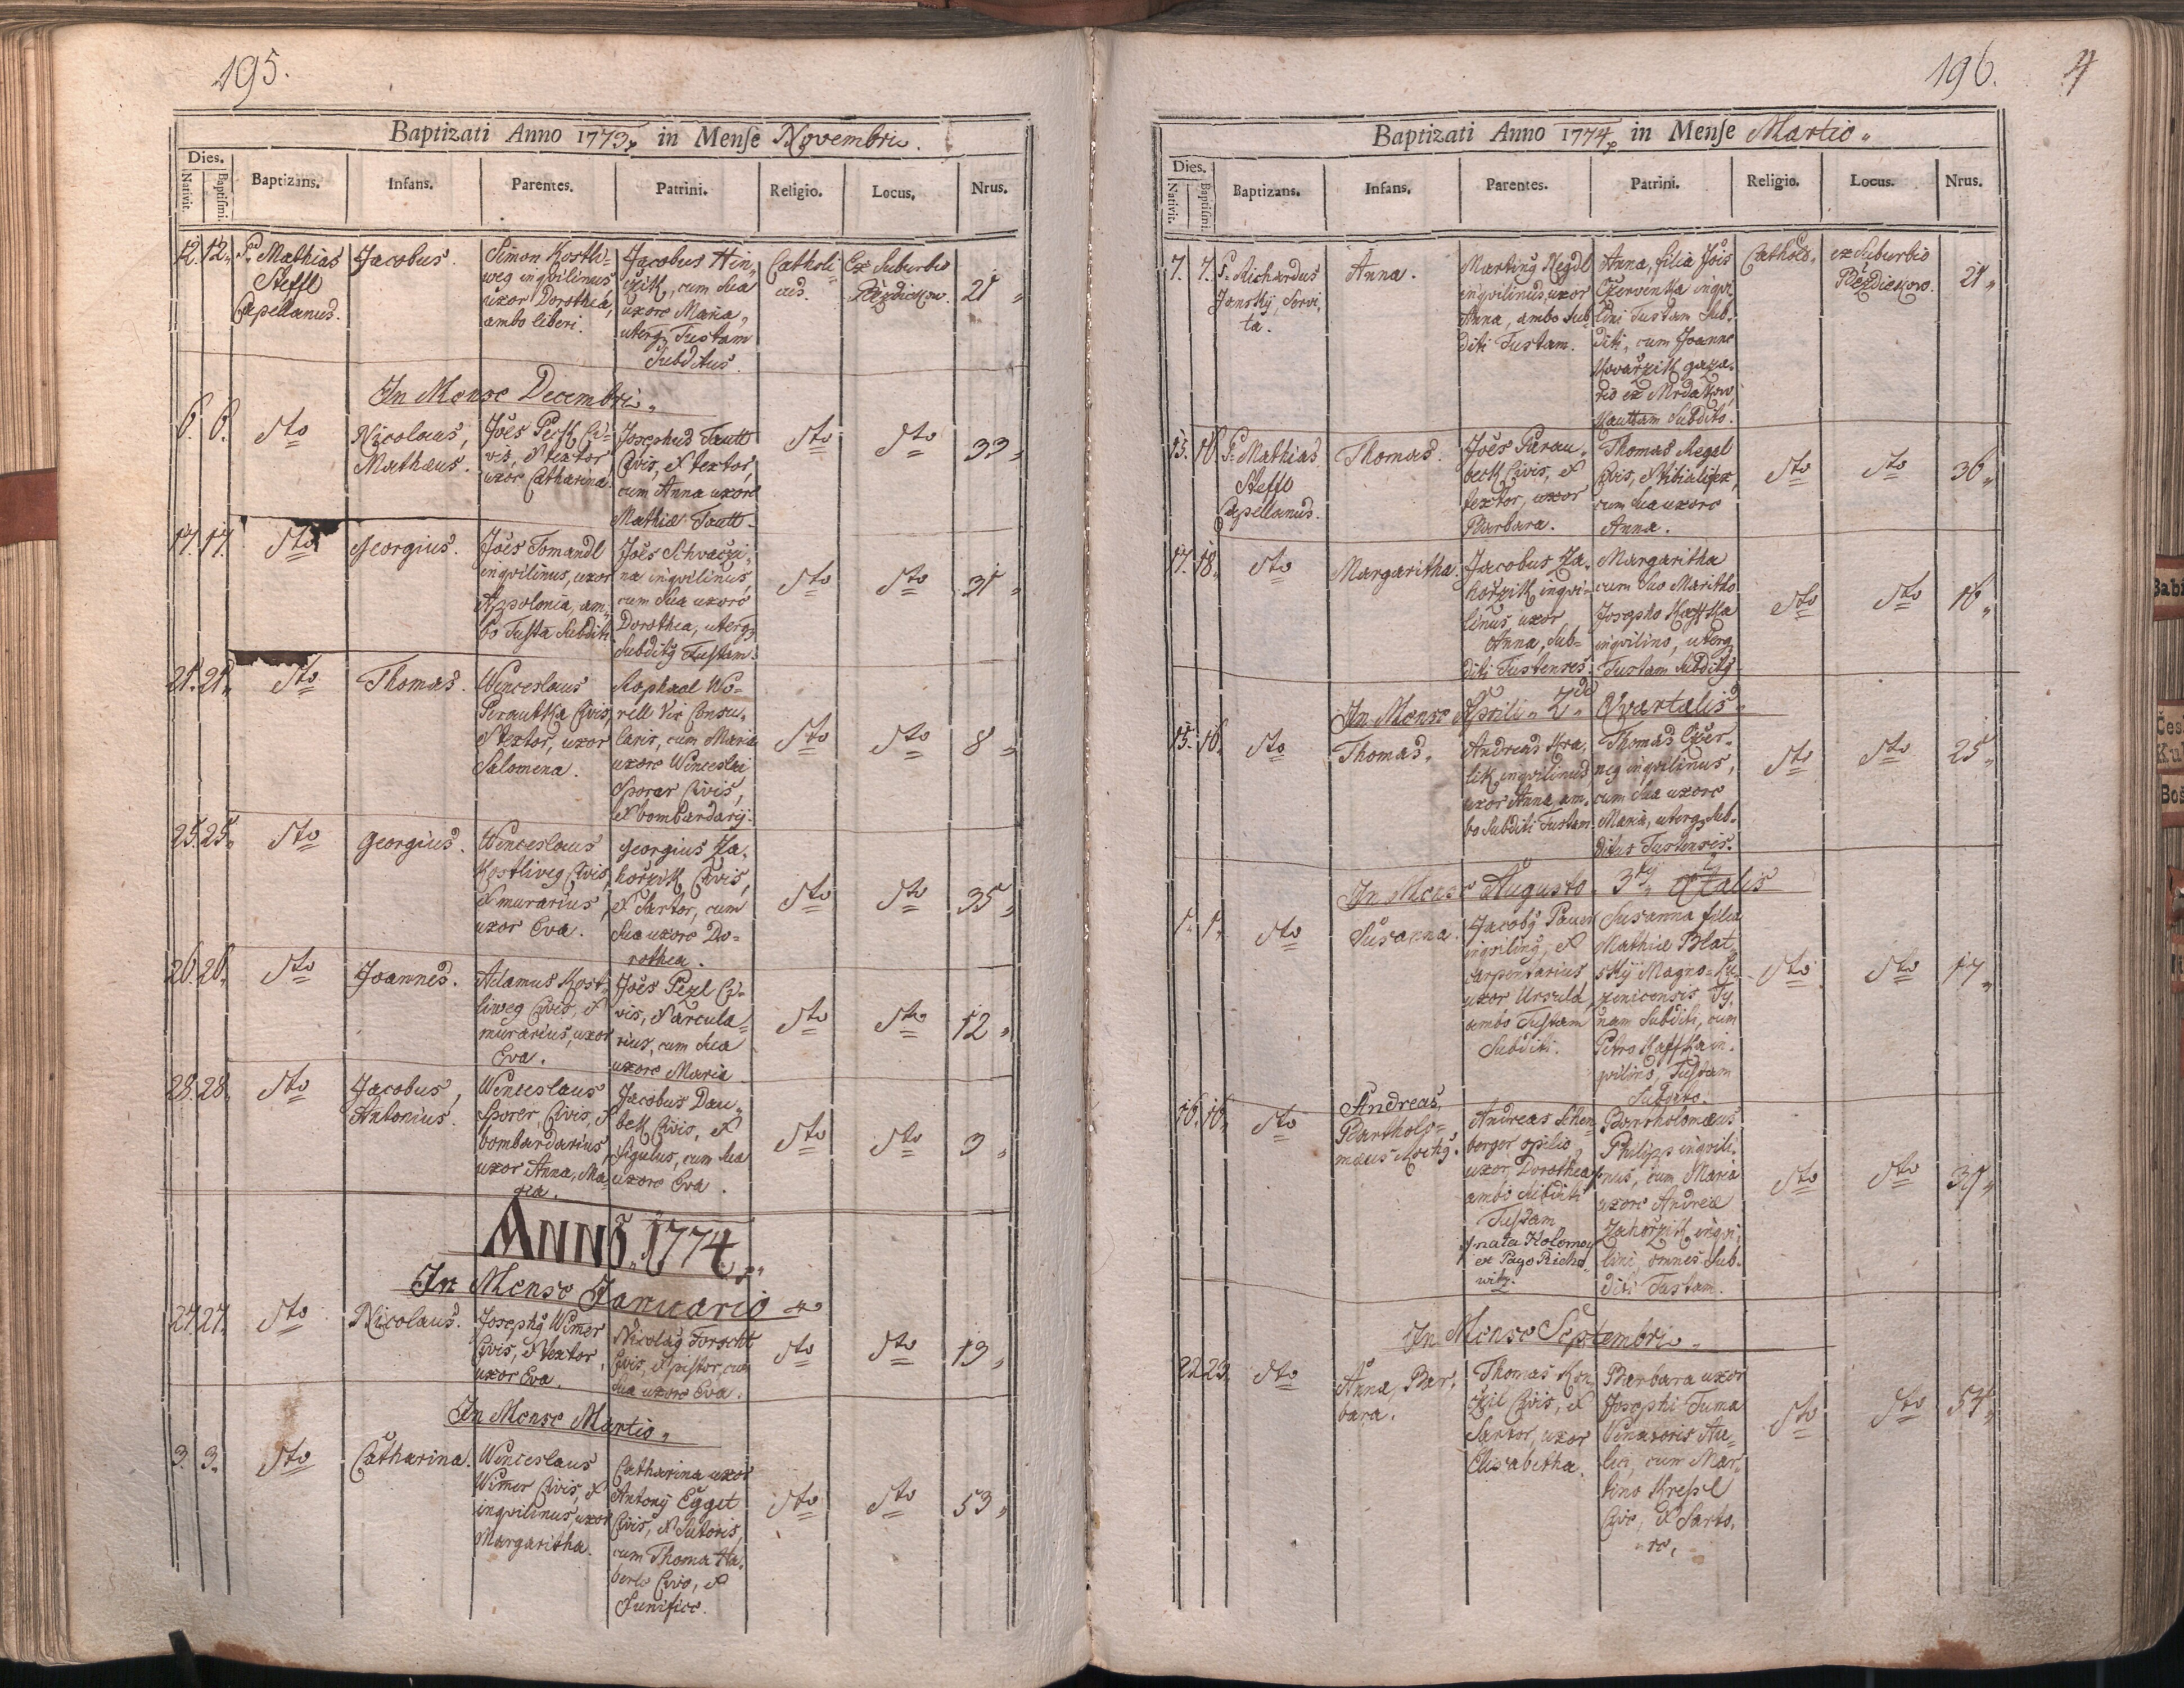 195.
Baptizati Anno 1773 in Mense Novembris.
Dies. Nativit. Baptismi. Baptizans. Infans. Parentes. Patrini. Religio. Locus. Nrus.
12. 12. P. Mathias
Steffl
Capellanus.
Jacobus.
Simon Kostli-
weg inqvilinus
uxor Dorothea,
ambo liberi.
Jacobus Hin-
czik, cum sua
uxore Maria,
uterq Tustam
Subditus.
Catholi-
cus.
Ex Suburbio
21
In Mense Decembri
6. 6. dto
Nicolaus,
Mathæus.
Joes Peck Ci-
vis, et textor
uxor Catharina.
Josephus Tautt
Civis, et textor,
cum Anna uxore
Mathiæ Tautt.
dto dto 33
17. 17. dto
Georgius.
Joes Tomandl
inqvilinus, uxor
Appolonia, am-
bo Tusta Subditi
Joes Schvaczi-
na inqvilinus,
cum sua uxore
Dorothea, uterq
Subditg Tustam.
dto dto 31
21. 21. dto
Thomas.
Wenceslaus
Perautka Civis,
et textor, uxor
Salomena.
Raphael Wo-
rell Vir Consu-
laris, cum Maria
uxore Wenceslai
Sporer Civis,
et bombardarij.
dto dto 8
25. 25. dto
Georgius.
Wenceslaus
Kostliveg Civis,
et murarius,
uxor Eva.
Georgius Za-
hořzik Civis,
et Sartor, cum
sua uxore Do-
rothea.
dto dto 35
26. 26. dto
Joannes.
Adamus Kost-
liweg Civis, et
murarius, uxor
Eva.
Joes Pezl Ci-
vis, et arcula-
rius, cum sua
uxore Maria
dto dto 12
28. 28. dto
Jacobus,
Antonius.
Wenceslaus
Sporer, Civis, et
bombardarius,
uxor Anna, Ma-
ria.
Jacobus Dau-
bek Civis, et
figulus, cum sua
uxore Eva.
dto dto 3
ANNO 1774
In Mense Januario
27. 27. dto
Nicolaus.
Josephg Wimer
Civis, et textor,
uxor Eva.
Nicolag Forscht
Civis, et pistor, cum
sua uxore Eva.
dto dto 13
In Mense Martio
3. 3. dto
Catharina.
Wenceslaus
Wimer Civis, et
inqvilinus, uxor
Margaritha.
Catharina uxor
Antonij Egget
Civis, et Sutoris,
cum Thoma Ha-
berle Cive, et
Funifice.
dto dto 53
196. 4
Baptizati Anno 1774 in Mense Martio
Dies. Nativit. Baptismi. Baptizans. Infans. Parentes. Patrini. Religio. Locus. Nrus.
7. 7. P. Richardus
Jansky, Servi-
ta.
Anna.
Marting Hegdl
inqvilinus, uxor
Anna, ambo Sub-
diti Tustam.
Anna, filia Jois
Czerventka inqvi-
lini Tustam Sub-
diti, cum Joanne
Kovařzik
ex Mrdakow,
Kauttam Subdito.
Catholo.
ex Suburbio
21
15. 16. P. Mathias
Steffl
Capellanus.
Thomas.
Joes Parau-
beck Civis, et
textor, uxor
Barbara.
Thomas Regel
Civis, et tibialifex,
cum sua uxore
Anna.
dto dto 36
17. 18. dto
Margaritha.
Jacobus Za-
hořzik inqvi-
linus, uxor
Anna, Sub-
diti Tustenses.
Margaritha
cum suo Maritho
Josepho Kaffka
inqvilino, uterq
Tustam Subditg.
dto dto 16
In Mense Aprili 2di Qvartalis
15. 16. dto
Thomas.
Andreas Kra-
lik inqvilinus
uxor Anna, am-
bo Subditi Tustam.
Thomas Czer-
neg inqvilinus,
cum sua uxore
Maria, uterq Sub-
ditus Tustensis.
dto dto 25
In Mense Augusto 3tij Qtalis
1. 1. dto
Susanna.
Jacobg Pauer
inqviling, et
carpentarius
uxor Ursula,
ambo Tustam
Subditi.
Susanna filia
Mathiæ Blat-
sky Magno-Lu-
zenicensis, Ty-
nam Subditi, cum
Petro Kaffka in-
qvilino, Tustam
Subdito.
dto dto 17
16. 16. dto
Andreas,
Bartholo-
mæus
Andreas Schen-
berger opilio,
uxor Dorothea,
ambo subditi
Tustam
nata Kolomay
ex Pago Richo-
witz.
Bartholomæus
Philipp inqvili-
nus, cum Maria
uxore Andreæ
Zahořzik inqvi-
lini, omnes Sub-
diti Tustam.
dto dto
In Mense Septembri
22. 23. dto
Anna, Bar-
bara.
Thomas Kon-
czil Civis, et
Sartor, uxor
Elisabetha.
Barbara uxor
Josephi Tuma
Venatoris Au-
lici, cum Mar-
tino Kressl
Cive, et Sarto-
re,
dto dto 54